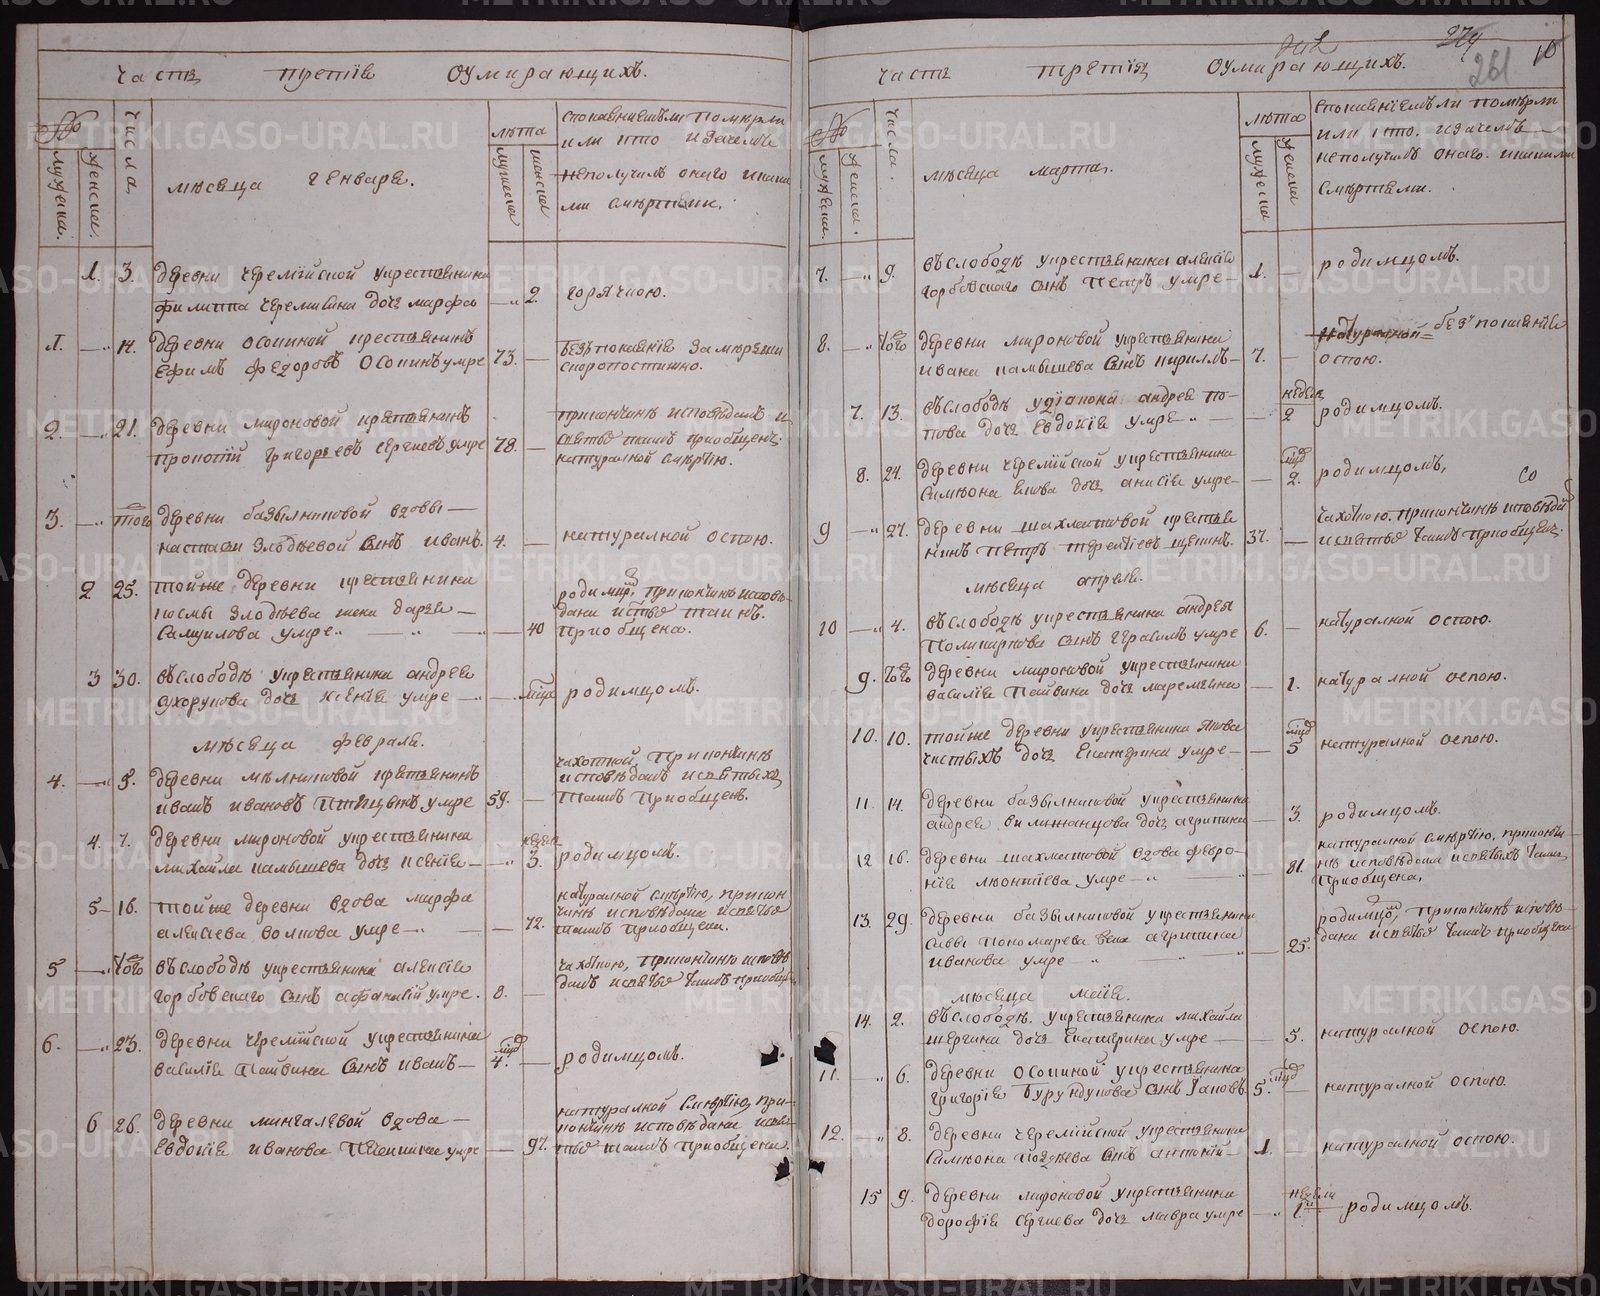 часть третія оумирающихъ.
№
мужска.
женска.
Числа
мѣсяца генваря.
лѣта
мужеска
женска
спокаяниемъ ли померли
или кто и зачемъ
неполучилъ онаго и каки
ми смертьми.
1. 3. деревни черемійской укрестьянина
филиппа черемисина дочь марфа 2. горячкою.
1. 14. деревни осокиной крестьянинъ
ефимъ федоровъ осокинъ умре 73.
безъ покаяния замерши
скоропостижно.
2. 21. деревни мироновой крестьянинъ
прокопій григорьевъ сергиевъ умре 78.
прикончинѣ исповѣданъ и
святыхъ таинъ приобщенъ
натуралной смертію.
3. того деревни базылниковой вдовы
настасьи злодѣевой сынъ иванъ. 4. натуралной оспою.
2 25. тойже деревни крестьянина
космы злодѣева жена дарья
самуилова умре 40
родимцъ, прикончинѣ исповѣ
дана истыхъ таинъ
приобщена.
3 30. въслободѣ укрестьянина андрея
сухорукова дочь ксения умре мца родимцомъ.
мѣсяца февраля.
4. 5. деревни мѣлниковой крестьянинъ
иванъ ивановъ умре 59.
чахоткой, прикончинѣ
исповѣданъ исвятыхъ
таинъ приобщенъ.
4. 7. деревни мироновой укрестьянина
михайла камышева дочь ксения недѣл 3. родимцомъ.
5 16. тойже деревни вдова марфа
алексѣева волкова умре 72.
натуралной смертію, прикон
чинѣ исповѣдана исвятыхъ
таинъ приобщена.
5 того въслободѣ укрестьянина алексѣя
горбовскаго сынъ афанасій умре. 8.
чахоткою, прикончинѣ исповѣ
данъ исвятыхъ таинъ приобщенъ
6. 23. деревни черемійской укрестьянина
василія пайвина сынъ иванъ мцд 4. родимцомъ.
6 26. деревни мингалевой вдова
евдокія иванова умре 97.
натуралной смертію, при
кончинѣ исповѣдана исвя
тыхъ таинъ приобщена.
274
261
10
часть третія оумирающихъ.
№
мужска.
женска.
Числа.
мѣсяца марта.
лѣта
мужска
женска
спокаяниемъ ли померли
или кто. изачемъ
неполучилъ онаго. икакими
смертьми.
7. 9. въслободѣ укрестьянина алексѣя
горбовскаго сынъ петръ умре 1. родимцомъ.
8. того деревни мироновой укрестьянина
ивана камышева сынъ кирилъ 7.
безъ покаянія
оспою.
7. 13. въслободѣ удіакона андрея по
пова дочь евдокія умре недѣл 2 родимцомъ.
8. 24. деревни черемійской укрестьянина
симиона дочь анисія умре мцд 2. родимцомъ,
9 27. деревни шахматовой крестья
нинъ петръ терентіевъ щекинъ. 37.
чахоткою. прикончинѣ исповѣда
исвятыхъ таинъ приобщенъ.
мѣсяца апреля.
10 4. въслободѣ укрестьянина андрея
поликарпова сынъ герасимъ умре 6. натуралной оспою.
9. того деревни мироновой укрестьянина
василія пайвина дочь маремьяна 1. натуралной оспою.
10. 10. тойже деревни укрестьянина якова
чистыхъ дочь екатерина умре мцд 5 натуралной оспою.
11. 14. деревни базылниковой укрестьянина
андрея дочь агрипина 3. родимцомъ.
12 16. деревни шахматовой вдова февро
нія леонтіева умре 81.
натуралной смертію, прикончи
нѣ исповѣдана исвятыхъ таинъ
приобщена,
13. 29. деревни базылниковой укрестьянина
саввы пономарева жена агрипина
иванова умре 25.
родимцомъ, прикончинѣ исповѣ
дана исвятыхъ таинъ приобщена
мѣсяца маія.
14. 2. въслободѣ. укрестьянина михайла
шергина дочь екатерина умре 5. натуралной оспою.
11. 6. деревни осокиной укрестьянина
григорія бурундукова сынъ іаковъ 5. мцд натуралной оспою.
12. 8. деревни черемійской укрестьянина
симиона сынъ антоній 1. натуралной оспою.
15 9. деревни мироновой укрестьянина
дорофія сергиева дочь мавра умре недели 1 родимцомъ.